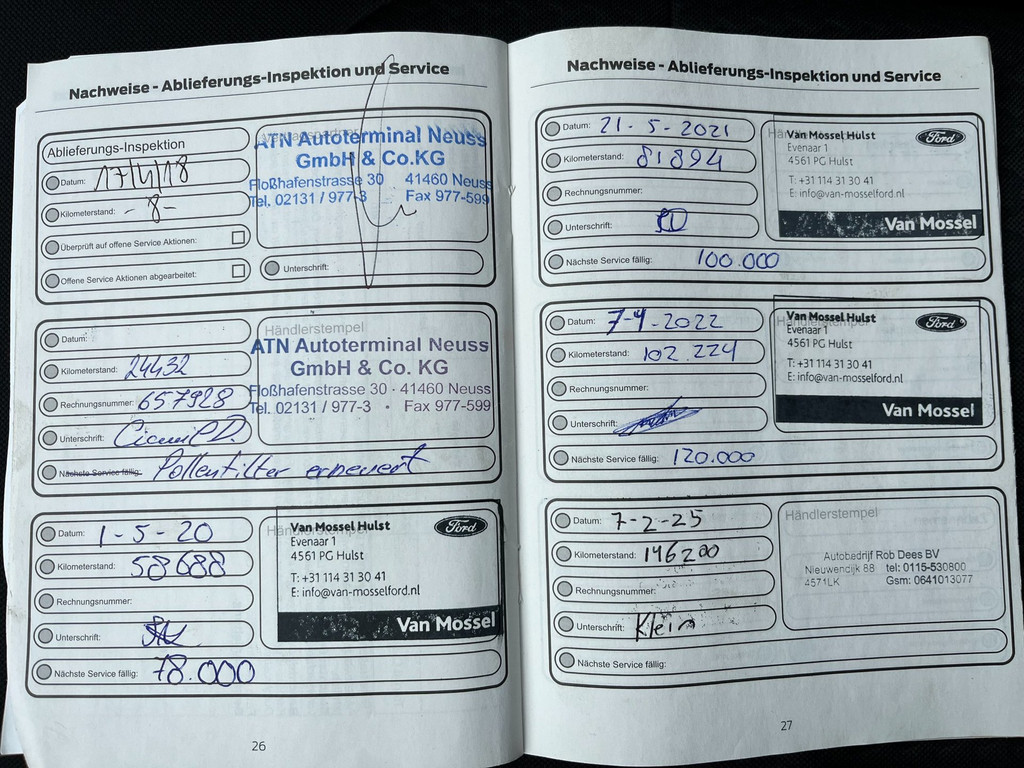 Nachweise - Ablieferungs-Inspektion und Service
Ablieferungs-Inspektion
Datum: 17/4/18
Kilometerstand: - 8 -
Überprüft auf offene Service Aktionen:
Offene Service Aktionen abgearbeitet:
ATN Autoterminal Neuss
GmbH & Co.KG
Floßhafenstrasse 30 41460 Neuss
Tel. 02131 / 977-3 Fax 977-599
Unterschrift:
Datum:
Kilometerstand: 24432
Rechnungsnummer: 657928
Unterschrift:
Nächste Service fällig: Pollenfilter erneuert
Händlerstempel
ATN Autoterminal Neuss
GmbH & Co. KG
Floßhafenstrasse 30 · 41460 Neuss
Tel. 02131 / 977-3 • Fax 977-599
Datum: 1-5-20
Kilometerstand: 58688
Rechnungsnummer:
Unterschrift:
Nächste Service fällig: 78.000
Van Mossel Hulst
Evenaar 1
4561 PG Hulst
T: +31 114 31 30 41
E: info@van-mosselford.nl
Ford
Van Mossel
26
Nachweise - Ablieferungs-Inspektion und Service
Datum: 21-5-2021
Kilometerstand: 81894
Rechnungsnummer:
Unterschrift:
Nächste Service fällig: 100.000
Van Mossel Hulst
Evenaar 1
4561 PG Hulst
T: +31 114 31 30 41
E: info@van-mosselford.nl
Ford
Van Mossel
Datum: 7-4-2022
Kilometerstand: 102.224
Rechnungsnummer:
Unterschrift:
Nächste Service fällig: 120.000
Van Mossel Hulst
Evenaar 1
4561 PG Hulst
T: +31 114 31 30 41
E: info@van-mosselford.nl
Ford
Van Mossel
Datum: 7-2-25
Kilometerstand: 146200
Rechnungsnummer:
Unterschrift: Klein
Nächste Service fällig:
Händlerstempel
Autobedrijf Rob Dees BV
Nieuwendijk 88 tel: 0115-530800
4571LK Gsm: 0641013077
27